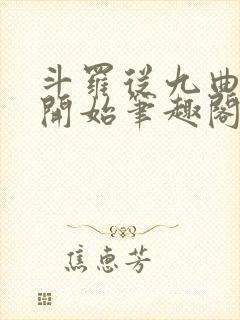 斗羅從九曲
開始筆趣閣
焦惠芳